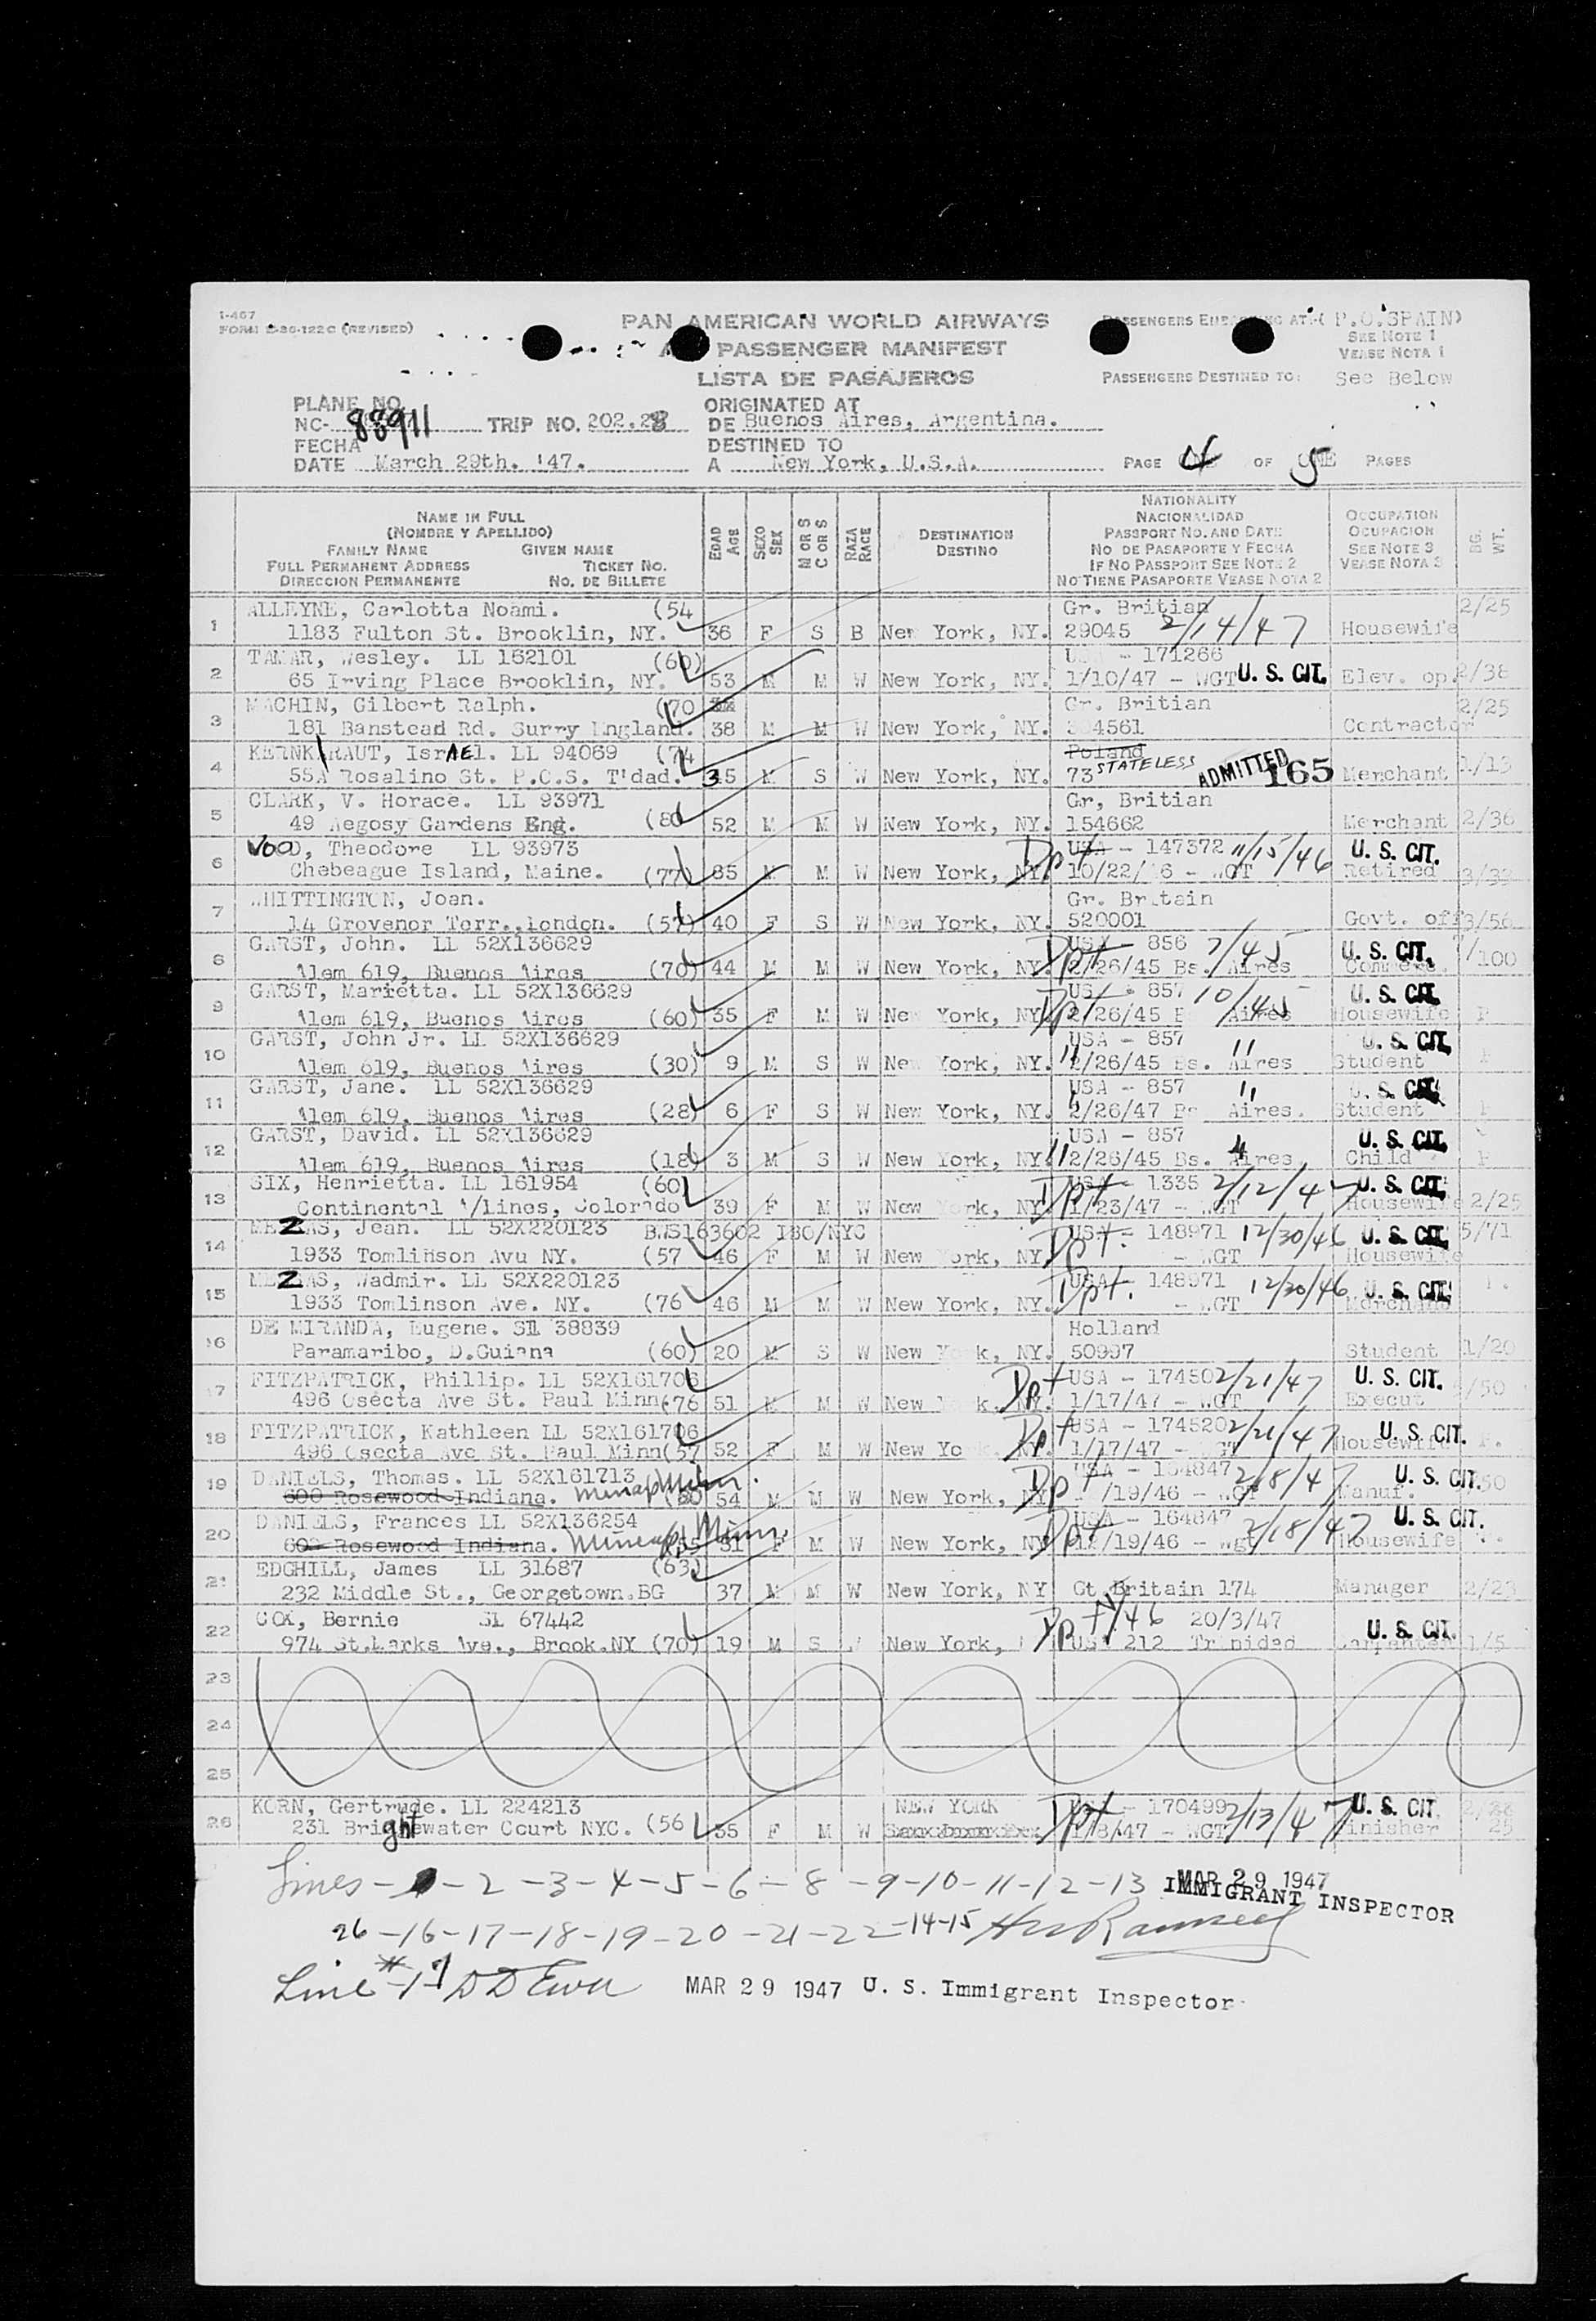 I-467
FORM (REVISED)
PAN AMERICAN WORLD AIRWAYS
PASSENGER MANIFEST
LISTA DE PASAJEROS
PASSENGERS AT: ( P.O.SPAIN)
SEE NOTE 1
VEASE NOTA 1
PASSENGERS DESTINED TO: See Below
PLANE NO.
NC- 88911 TRIP NO. 202.28
FECHA
DATE March 29th. '47.
ORIGINATED AT
DE Buenos Aires, Argentina.
DESTINED TO
A New York, U.S.A.
PAGE 4 OF 5 PAGES
NAME IN FULL
(NOMBRE Y APELLIDO)
FAMILY NAME GIVEN NAME
FULL PERMANENT ADDRESS TICKET NO.
DIRECCION PERMANENTE NO. DE BILLETE
EDAD AGE
SEXO SEX
M OR S C OR S
RAZA RACE
DESTINATION
DESTINO
NATIONALITY
NACIONALIDAD
PASSPORT NO. AND DATE
NO DE PASAPORTE Y FECHA
IF NO PASSPORT SEE NOTE 2
NO TIENE PASAPORTE VEASE NOTA 2
OCCUPATION
OCUPACION
SEE NOTE 3
VEASE NOTA 3
BG. WT.
1 ALLEYNE, Carlotta Noami. (54 Gr. Britian 2/25
1183 Fulton St. Brooklin, NY. 36 F S B New York, NY. 29045 2/14/47 Housewife
2 Wesley. LL 162101 (60) - 171266
65 Irving Place Brooklin, NY. 53 M M W New York, NY. 1/10/47 - WGT U. S. CIT. Elev. op. 2/38
3 MACHIN, Gilbert Ralph. (70 Gr. Britian 2/25
181 Banstead Rd. Surry England. 38 M M W New York, NY. 4561 Contractor
4 KERNKRAUT, IsrAEl. LL 94069 (74 Poland
55A Rosalino St. P.O.S. T'dad. 35 M S W New York, NY. 73 STATELESS ADMITTED 165 Merchant 1/13
5 CLARK, V. Horace. LL 93971 Gr, Britian
49 Aegosy Gardens Eng. (80 52 M M W New York, NY. 154662 Merchant 2/36
6 WOOD, Theodore LL 93973 USA - 147372 11/15/46 U. S. CIT.
Chebeague Island, Maine. (77) 85 M M W New York, NY. Dpt 10/22/ 6 - WGT Retired
7 WHITTINGTON, Joan. Gr. Britain
14 Grovenor Terr., London. (57) 40 F S W New York, NY. 520001 Govt. off 3/56
8 GARST, John. LL 52X136629 USA - 856 7/45 U. S. CIT.
Alem 619, Buenos Aires (70) 44 M M W New York, NY. Dpt 2/26/45 Bs. Aires /100
9 GARST, Marietta. LL 52X136629 857 10/45 U. S. CIT.
Alem 619, Buenos Aires (60) 35 F M W New York, NY Dpt 2/26/45 Aires Housewife
10 GARST, John Jr. LL 52X136629 USA - 857 " U. S. CIT.
Alem 619, Buenos Aires (30) 9 M S W New York, NY. " 2/26/45 Bs. Aires Student
11 GARST, Jane. LL 52X136629 USA - 857 " U. S. CIT.
Alem 619, Buenos Aires (28) 6 F S W New York, NY. " 2/26/47 Aires. Student
12 GARST, David. LL 52X136629 USA - 857 " U. S. CIT.
Alem 619, Buenos Aires (18) 3 M S W New York, NY. " 2/26/45 Bs. Aires Child
13 SIX, Henrietta. LL 161954 (60) 1335 2/12/47 U. S. CIT.
Continental A/Lines, Colorado 39 F M W New York, NY. Dpt 1/23/47 - WGT Housewife 2/25
14 Jean. LL 52X220123 BWS163602 IBO/NYC USA - 148971 12/30/46 U. S. CIT. 5/71
1933 Tomlinson Avu NY. (57 46 F M W New York, NY Dpt. - WGT Housewife
15 Wadmir. LL 52X220123 USA 148971 12/30/46 U. S. CIT.
1933 Tomlinson Ave. NY. (76 46 M M W New York, NY. Dpt. - WGT Merchant
16 DE MIRANDA, Eugene. 38839 Holland
Paramaribo, D.Guiana (60) 20 M S W New York, NY. 50997 Student 1/20
17 FITZPATRICK, Phillip. LL 52X161706 Dpt USA - 174502 2/21/47 U. S. CIT.
496 Osecta Ave St. Paul Minn(76 51 M M W New York, NY. 1/17/47 - WGT Execut /50
18 FITZPATRICK, Kathleen LL 52X161706 Dpt USA - 174520 2/21/47 U. S. CIT.
496 Osecta Ave St. Paul Minn(57 52 F M W New York, NY. 1/17/47 - WGT Housewife
19 DANIELS, Thomas. LL 52X161713 USA - 164847 2/18/47 U. S. CIT.
600 Rosewood Indiana. Minn. (80 54 M M W New York, NY Dpt /19/46 - WGT Manuf. 50
20 DANIELS, Frances LL 52X136254 USA - 164847 2/18/47 U. S. CIT.
600 Rosewood Indiana. Minn. 51 F M W New York, NY Dpt /19/46 - Wgt Housewife
21 EDGHILL, James LL 31687 (63)
232 Middle St., Georgetown.BG 37 M M W New York, NY Gt Britain 174 Manager 2/23
22 COX, Bernie SL 67442 Dpt /46 20/3/47
974 St.Marks Ave., Brook.NY (70) 19 M S New York, USA 212 Trinidad Carpenter U. S. CIT. 1/5
23
24
25
26 KORN, Gertrude. LL 224213 NEW YORK Dpt. - 170499 2/13/47 U. S. CIT.
231 Brightewater Court NYC. (56 35 F M W 1/8/47 - WGT Finisher 25
Lines - 1 - 2 - 3 - 4 - 5 - 6 - 8 - 9 - 10 - 11 - 12 - 13 MAR 29 1947
IMMIGRANT INSPECTOR
26 - 16 - 17 - 18 - 19 - 20 - 21 - 22 - 14-15
Line # 1-7 MAR 29 1947 U. S. Immigrant Inspector